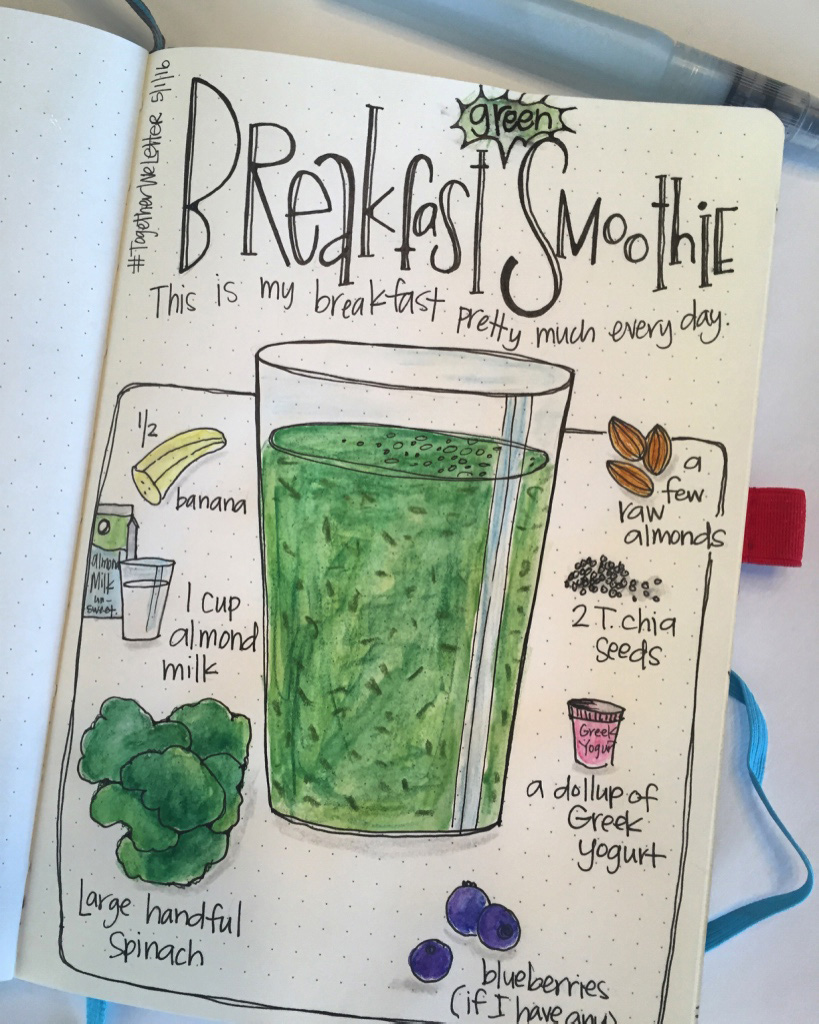 #TogetherWeLetter 5/1/16
green
Breakfast Smoothie
This is my breakfast pretty much every day.
1/2
banana
almond
Milk
un-
sweet.
1 cup
almond
milk
Large handful
Spinach
a
few
raw
almonds
2 T. chia
seeds
Greek
Yogurt
a dollup of
Greek
Yogurt
blueberries
(if I have any)